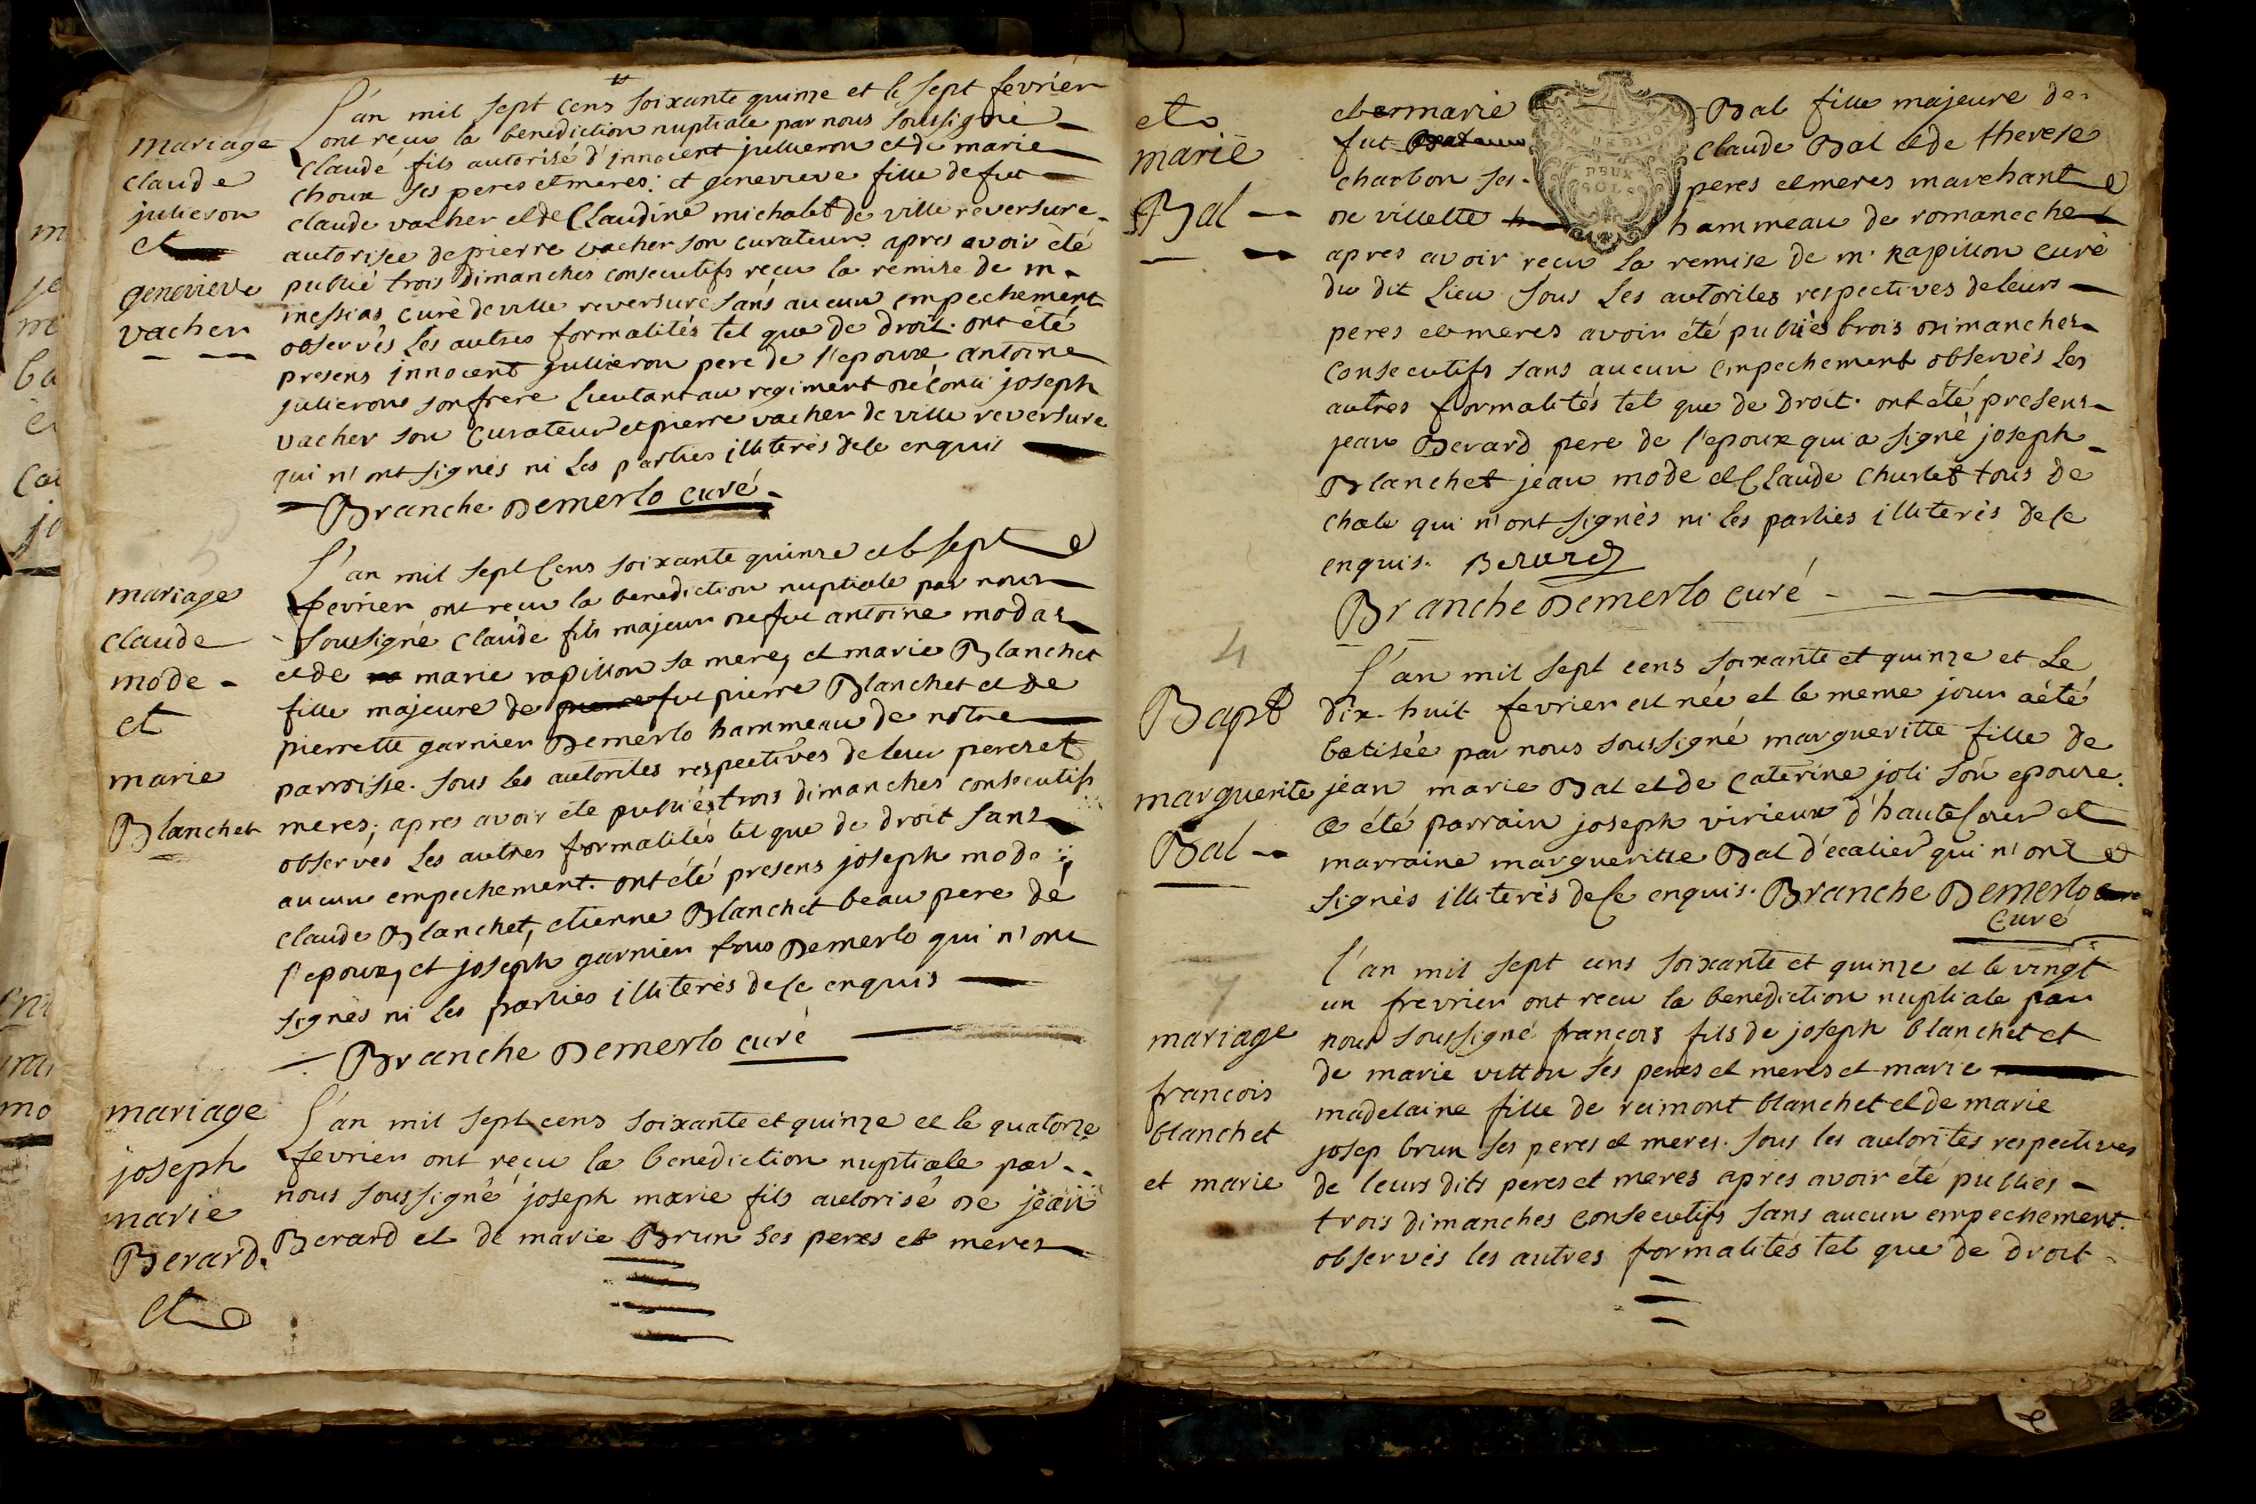 mariage
claude
julieron
et
genevieve
vacher
L'an mil sept cens soixante quinze et le sept fevrier
ont reçu la benediction nuptiale par nous soussigné
claude fils autorisé d'innocent jullieron et de marie
choux ses peres et meres: et genevieve fille de fut
claude vacher et de Claudine michalet de ville reversure
autorisée de pierre vacher son curateur. apres avoir été
publié trois dimanches consecutifs reçu la remise de m
messias curé de ville reversure sans aucun empechement
observés les autres formalités tel que de droit. ont été
presens innocent jullieron pere de l'epoux antoine
julieron son frere Lieutant au regiment joseph
vacher son Curateur et pierre vacher de ville reversure
qui n'ont signés ni les parties illiterés de ce enquis
Branche Demerlo curé
mariage
claude
mode
et
marie
Blanchet
L'an mil sept Cens soixante quinze et le sept
fevrier ont reçu la benediction nuptiale par nous
soussigné Claude fils majeur de fut antoine modas
et de marie rapillon sa mere, et marie Blanchet
fille majeure de fut pierre Blanchet et de
pierrette garnier Demerlo hammeau de nôtre
parroisse. sous les autorités respectives de leur peres et
meres; apres avoir été publiés trois dimanches consecutifs
observés les autres formalités tel que de droit sans
aucun empechement. ont été presens joseph mode
claude Blanchet, etienne Blanchet beau pere de
l'epoux, et joseph garnier tous Demerlo qui n'ont
signés ni les parties illiterés de ce enquis
Branche Demerlo curé
mariage
joseph
marie
Berard.
et
L'an mil sept cens soixante et quinze et le quatorze
fevrier ont reçu la benediction nuptiale par
nous soussigné joseph marie fils autorisé de jean
Berard et de marie Brun ses peres et meres
et
marie
Bal
et marie Bal fille majeure de
fut claude Bal et de therese
charbon ses peres et meres marchant
de villette hammeau de romaneche
apres avoir reçu la remise de m. Rapillon curé
du dit Lieu sous Les autorités respectives de leurs
peres et meres avoir été publiés trois dimanches
consecutifs sans aucun empechement observés les
autres formalités tel que de Droit. ont été presens
jean Berard pere de l'epoux qui a signé joseph
Blanchet jean mode et Claude Churlet tous de
chale qui n'ont signés ni les parties illiterés de ce
enquis. Berard
Branche Demerlo curé
4
Bapt
marguerite
Bal
L'an mil sept cens soixante et quinze et Le
dix-huit fevrier est née et le meme jour a été
batisée par nous soussigné margueritte fille de
jean marie Bal et de Caterine joli son epouse
a été parrain joseph virieux d'hautecour et
marraine margueritte Bal d'écalier qui n'ont
signés illiterés de ce enquis. Branche Demerlo
Curé
7
mariage
francois
blanchet
et marie
L'an mil sept cens soixante et quinze et le vingt
un fevrier ont reçu la benediction nuptiale par
nous soussigné françois fils de joseph blanchet et
de marie vitton ses peres et meres et marie
madelaine fille de reimont blanchet et de marie
josep brun ses peres et meres. sous les autorités respectives
de leurs dits peres et meres apres avoir été publiés
trois dimanches consecutifs sans aucun empechement.
observés les autres formalités tel que de droit